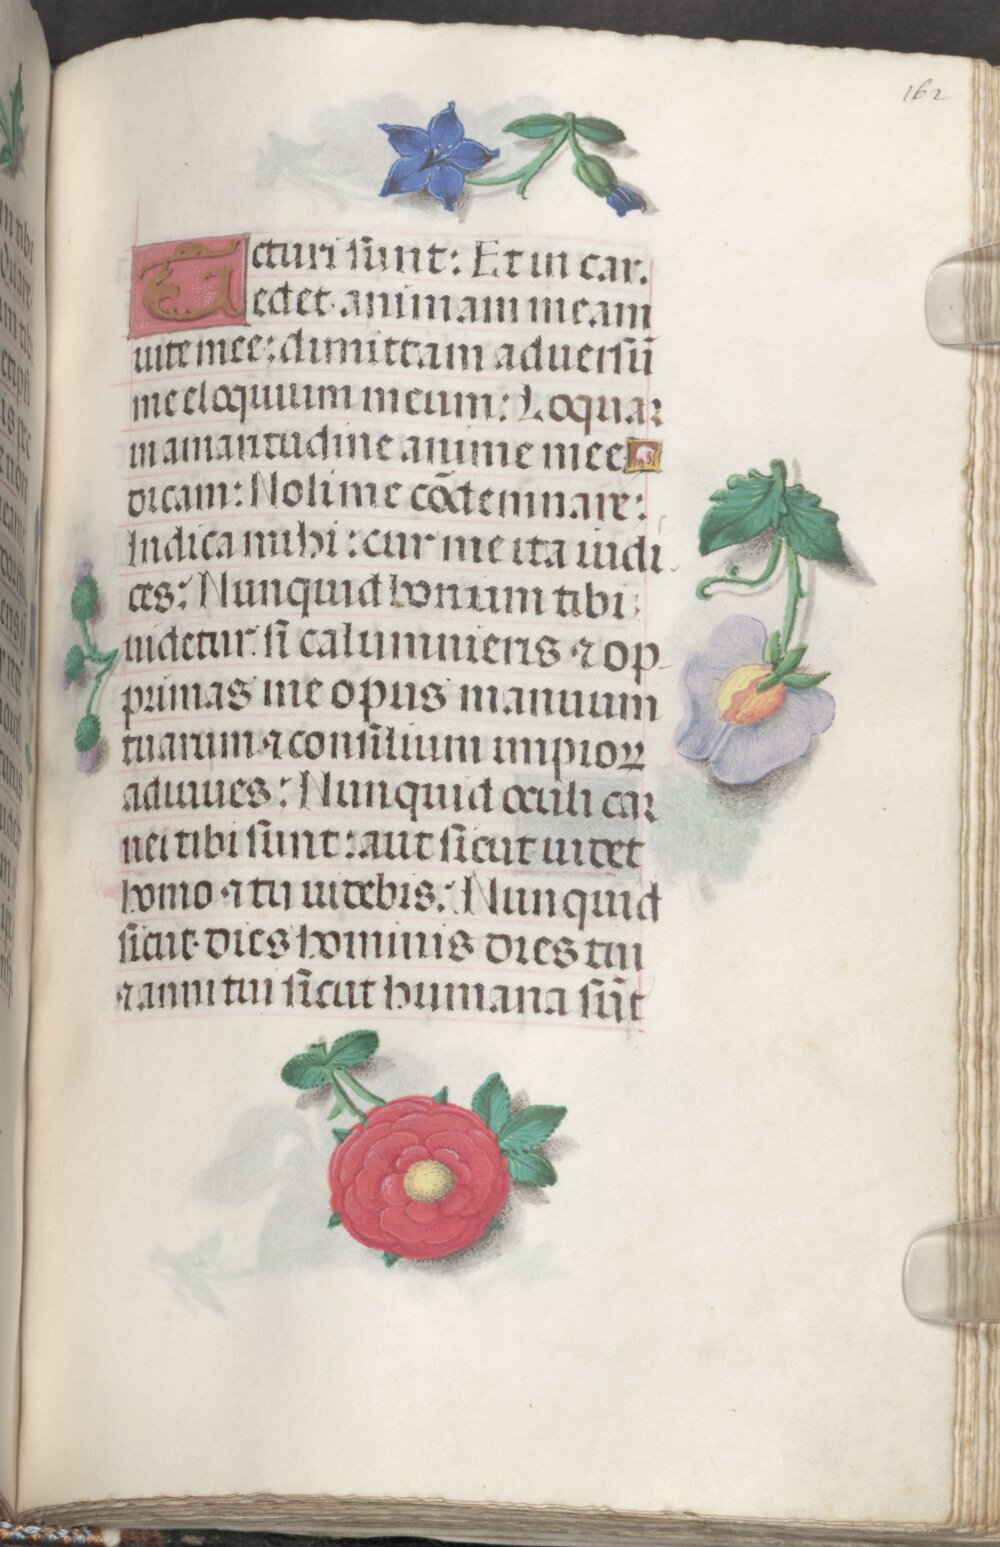 162
cturi sūnt: Et in car.
Tedet animam meam
uite mee: dimittam aduersū
me eloquium meum: Loquar
in amaritudine anime mee
dicam: Noli me cōdemnare:
Indica mihi: cur me ita iudi
ces: Nunquid bonum tibi
uidetur si calumnieris ⁊ op
primas me opus manuum
tuarum ⁊ consilium impioꝝ
adiuues: Nunquid oculi car
nei tibi sunt: aut sicut uidet
homo ⁊ tu uidebis: Nunquid
sicut dies hominis dies tui
⁊ anni tui sicut humana sūt